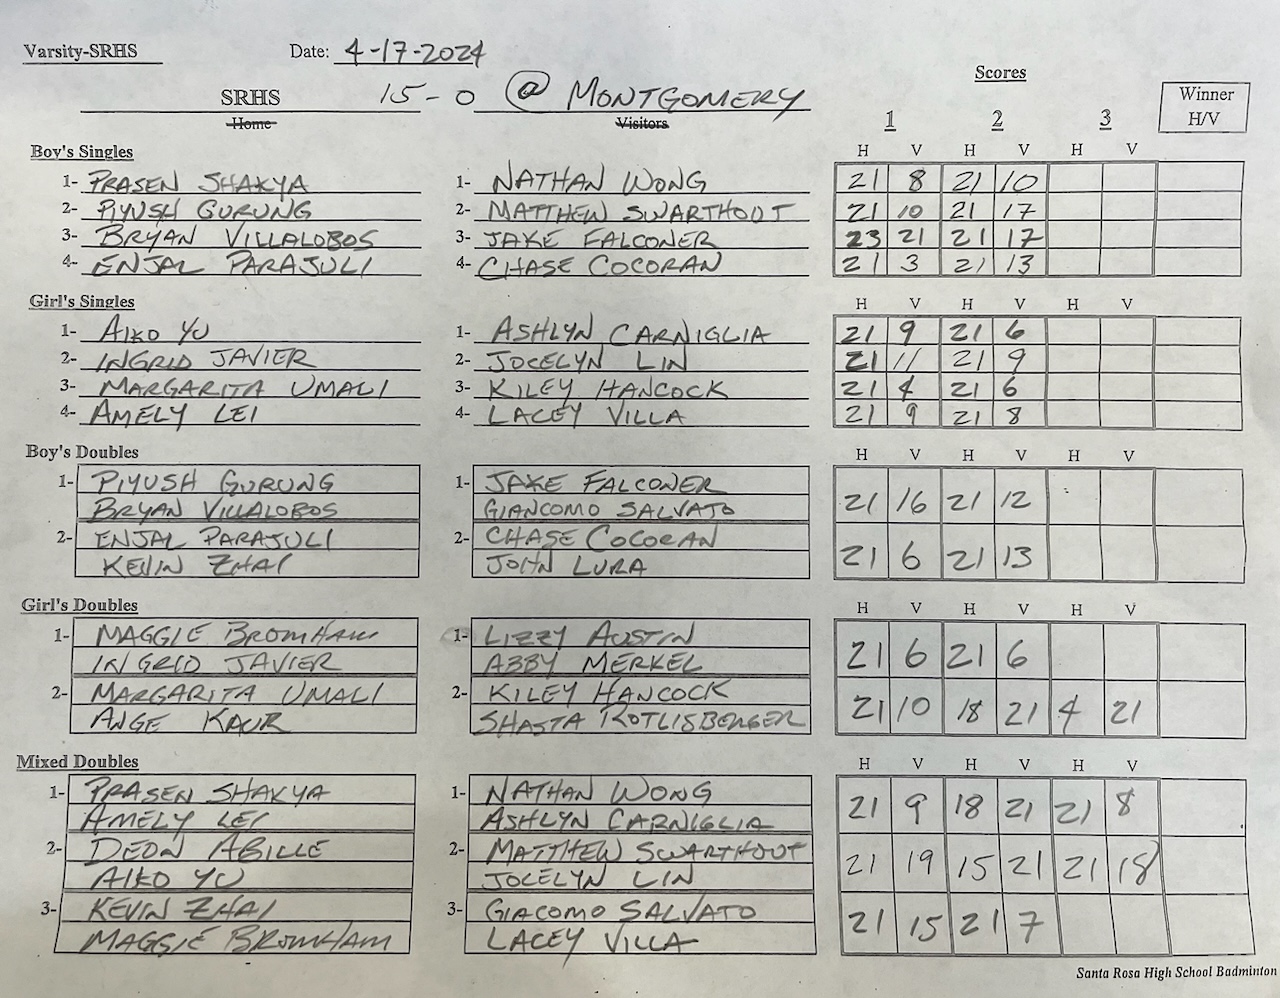 Varsity-SRHS Date: 4-17-2024
Scores
SRHS 15-0 @ MONTGOMERY
Winner
H/V
Home Visitors 1 2 3
Boy's Singles H V H V H V
1- PRASEN SHAKYA 1- NATHAN WONG 21 8 21 10
2- PIYUSH GURUNG 2- MATTHEW SWARTHOUT 21 10 21 17
3- BRYAN VILLALOBOS 3- JAKE FALCONER 23 21 21 17
4- ENJAL PARAJULI 4- CHASE COCORAN 21 3 21 13
Girl's Singles H V H V H V
1- AIKO YU 1- ASHLYN CARNIGLIA 21 9 21 6
2- INGRID JAVIER 2- JOCELYN LIN 21 11 21 9
3- MARGARITA UMALI 3- KILEY HANCOCK 21 4 21 6
4- AMELY LEI 4- LACEY VILLA 21 9 21 8
Boy's Doubles H V H V H V
1- PIYUSH GURUNG 1- JAKE FALCONER 21 16 21 12
BRYAN VILLALOBOS GIANCOMO SALVATO
2- ENJAL PARAJULI 2- CHASE COCORAN 21 6 21 13
KEVIN ZHAI JOHN LURA
Girl's Doubles H V H V H V
1- MAGGIE BROMHAM 1- LIZZY AUSTIN 21 6 21 6
INGRID JAVIER ABBY MERKEL
2- MARGARITA UMALI 2- KILEY HANCOCK 21 10 18 21 4 21
ANGE KAUR SHASTA ROTLISBERGER
Mixed Doubles H V H V H V
1- PRASEN SHAKYA 1- NATHAN WONG 21 9 18 21 21 8
AMELY LEI ASHLYN CARNIGLIA
2- DEON ABILLE 2- MATTHEW SWARTHOUT 21 19 15 21 21 18
AIKO YU JOCELYN LIN
3- KEVIN ZHAI 3- GIACOMO SALVATO 21 15 21 7
MAGGIE BROMHAM LACEY VILLA
Santa Rosa High School Badminton